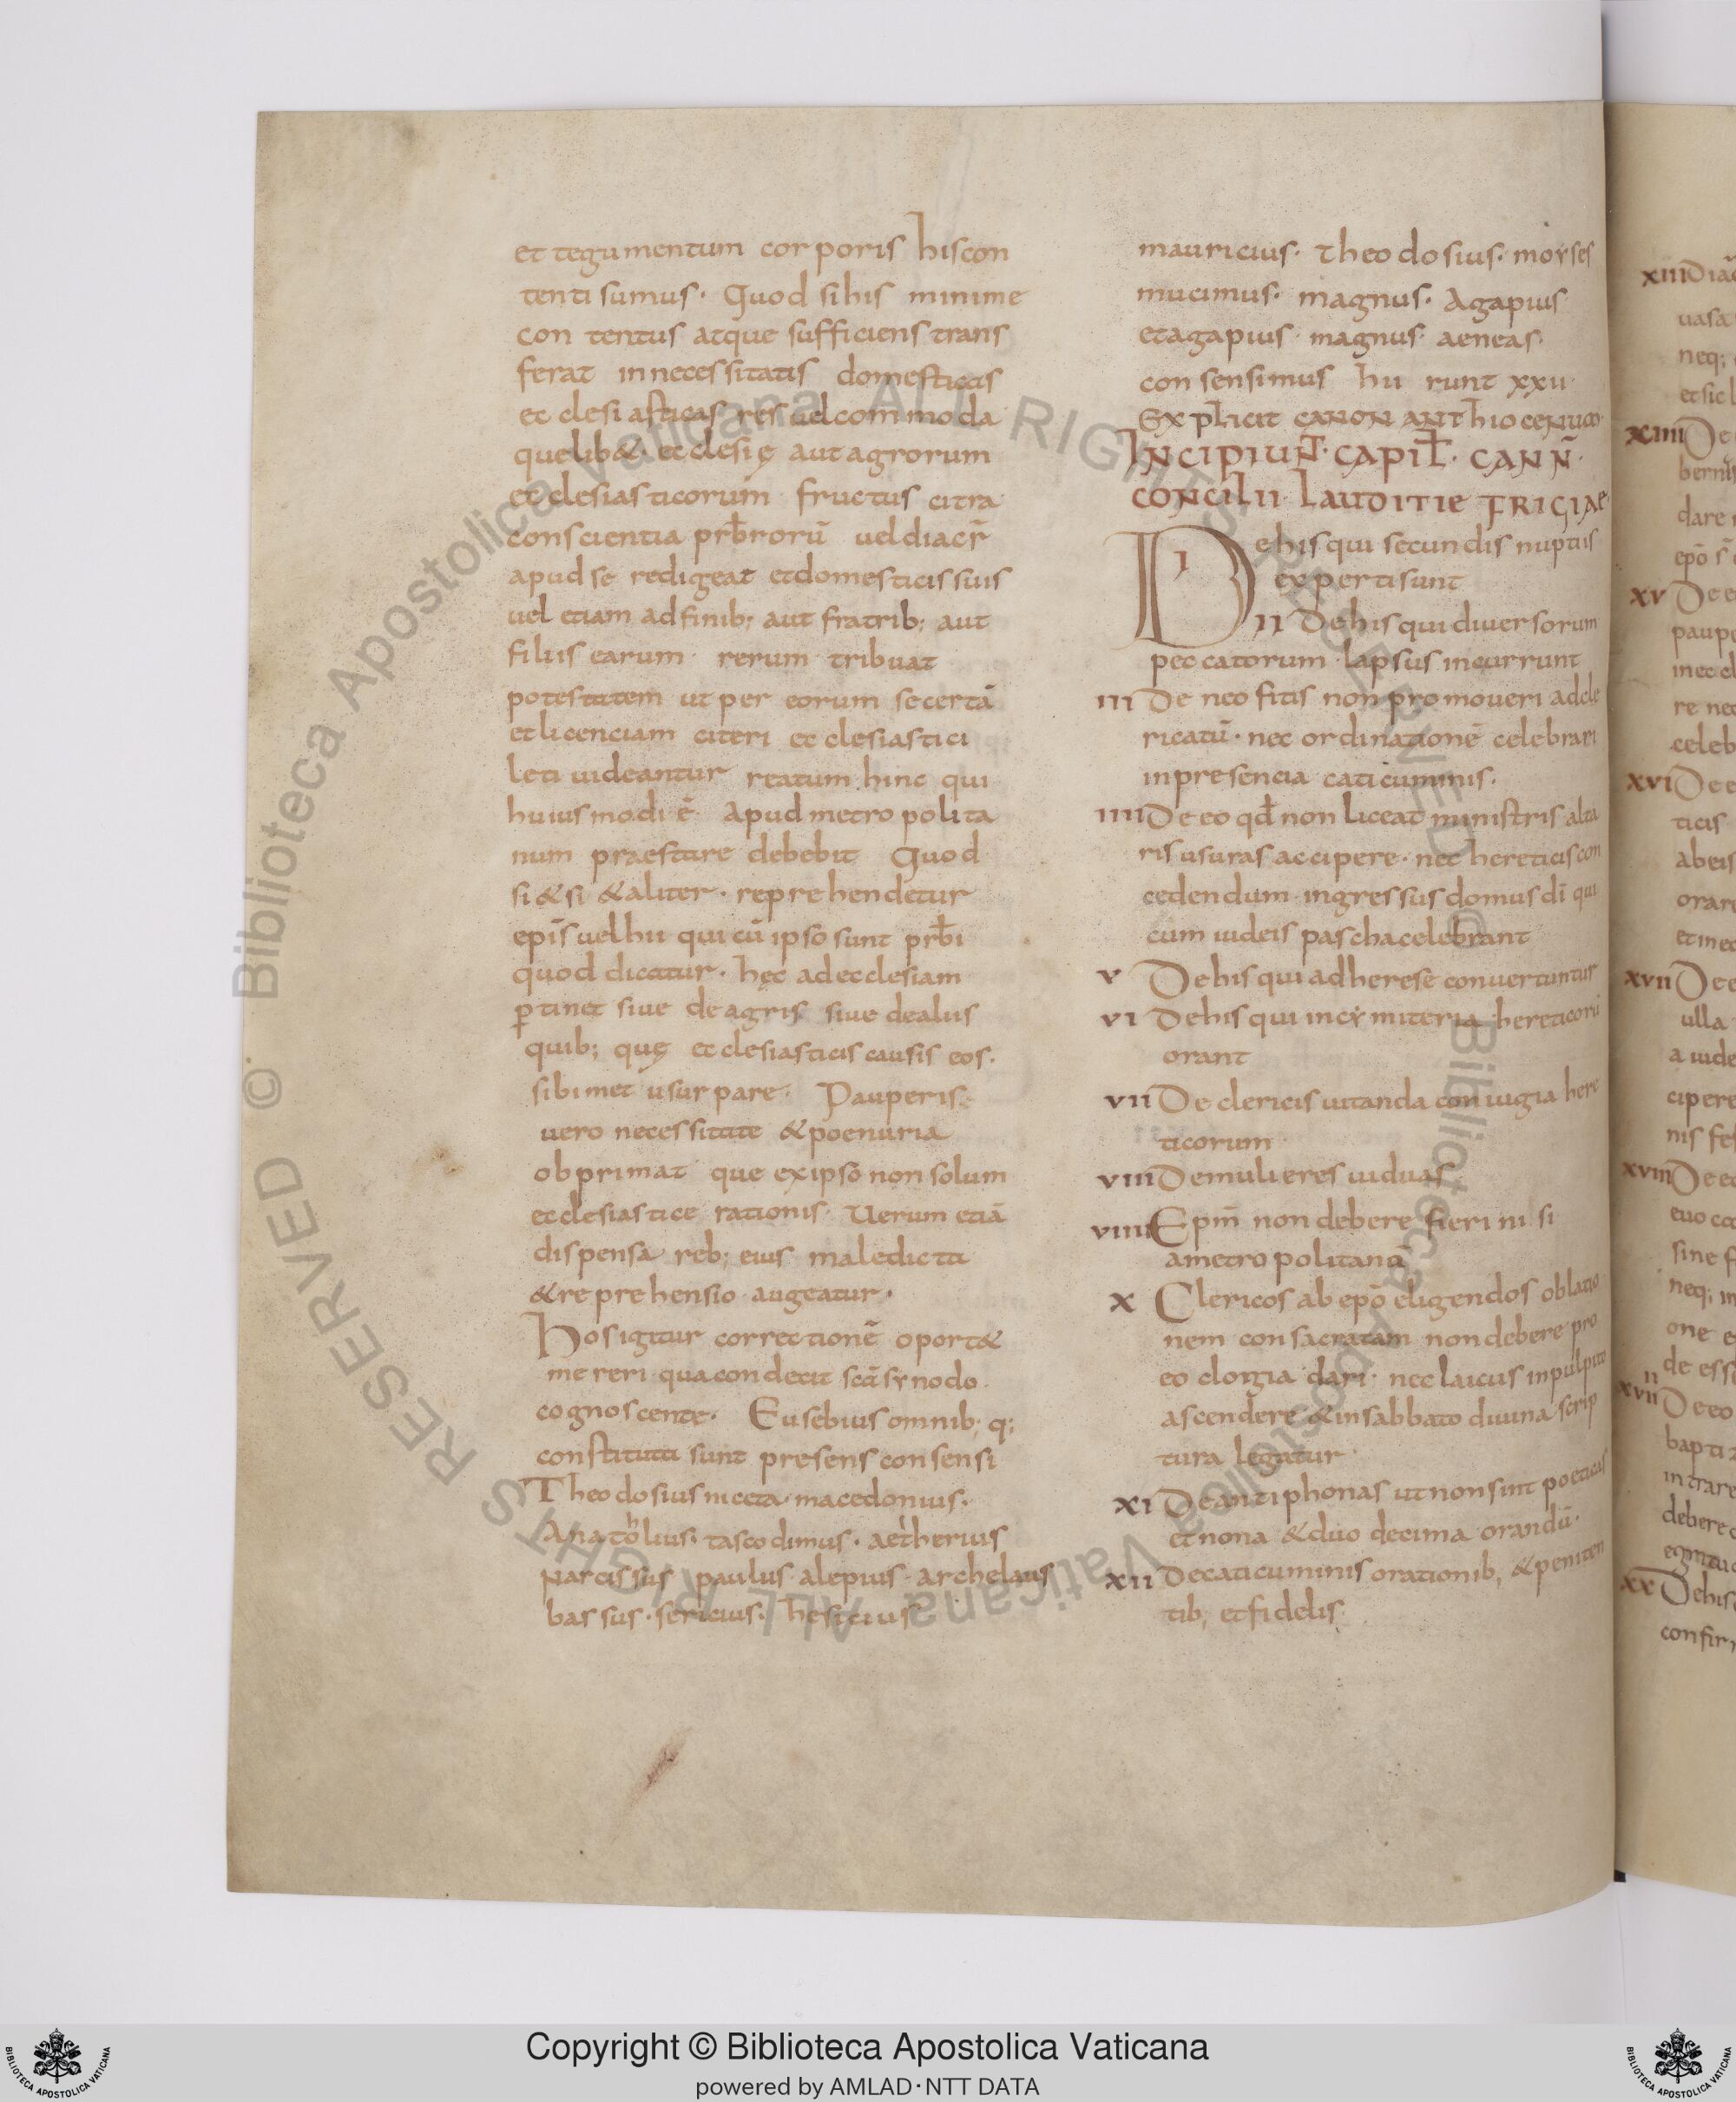 et tegumentum corporis hiscon
tenti sumus· Quod si his minime
con tentus atque sufficiens trans
ferat in necessitatis domesticas
ecclesiasticas res uel commoda
quelib&· ecclesię aut agrorum
ecclesiasticorum fructus citra
conscientia prb̄rorū uel diacr̄
apud se redigeat et domesticis suis
uel etiam adfinib; aut fratrib; aut
filiis earum· rerum tribuat
potestatem ut per eorum secertā
et licenciam citeri ecclesiastici
leti uideantur reatum hinc qui
huiusmodi ē Apud metropolita
num praestare debebit Quod
si & si & aliter· reprehendetur
epīs uel hii qui cū ipso sunt prb̄i
quod dicatur· hęc ad ecclesiam
ꝑtinet siue de agris siue dealiis
quib; quę ecclesiasticis causis eos·
sibimet usurpare· Pauperis·
uero necessitate & poenuria
obprimat que ex ipso non solum
ecclesiastice rationis· Uerum etiā
dispensa reb; eius maledicta
& reprehensio augeatur·
Hos igitur correctionē oport&
mereri qua condecit scā synodo
cognoscente· Eusebius omnib; q;
constituta sunt presens consensi
Theodosius niceta· macedonius·
Anatholius· tascodimus· aetherius
Narcissus paulus· alepius· archelaus
bassus· sericius· hesicius
mauricius· theodosius· moyses
mucimus· magnus· Agapius
et agapius· magnus· aeneas·
consensimus hii runt xxii·
Explicit canon anthiocenuco·
Incipiunt̄· capit̄l· cann̄·
concilii lauditie frigiae
i De his qui secundis nuptiis
experti sunt
ii De his qui diuersorum
peccatorum lapsus incurrunt
iii De neofitis non promoueri ad cle
ricatū· nec ordinationē celebrari
in presencia caticuminis·
iiii De eo qd̄ non liceat ministris alta
ris usuras accipere· nec hereticis con
cedendum ingressus domus dī qui
cum iudeis pascha celebrant
v De his qui ad heresē conuertuntur
vi De his qui in cymiteria hereticorū
orant
vii De clericis uitanda coniugia here
ticorum
viii De mulieres uiduas
viiii Epm̄ non debere fieri nisi
a metropolitanū
x Clericos ab epō eligendos oblatio
nem consacratam non debere pro
eo elogia dari· nec laicus in pulpito
ascendere & in sabbato diuina scrip
tura legatur·
xi De antiphonas ut non sint poeticas
et nona & duo decima orandū·
xii De caticuminis orationib; & peniten
tib; et fidelis·
xiii Diac
uasa
neq;
et sic l
xiiii De
bernis
dare
epō
xv De e
paupe
re nec
celeb
xvi De e
ticis
abeis
orare
et nec
xvii De e
ulla
a iude
cipere
nis fes
xviii De eo
sine f
neq; in
one e
de esse
De eo
bapti z
intrare
debere
xx De his
confir
Copyright © Biblioteca Apostolica Vaticana
powered by AMLAD·NTT DATA
© Biblioteca Apostolica Vaticana ALL RIGHTS RESERVED
BIBLIOTECA APOSTOLICA VATICANA
BIBLIOTECA APOSTOLICA VATICANA